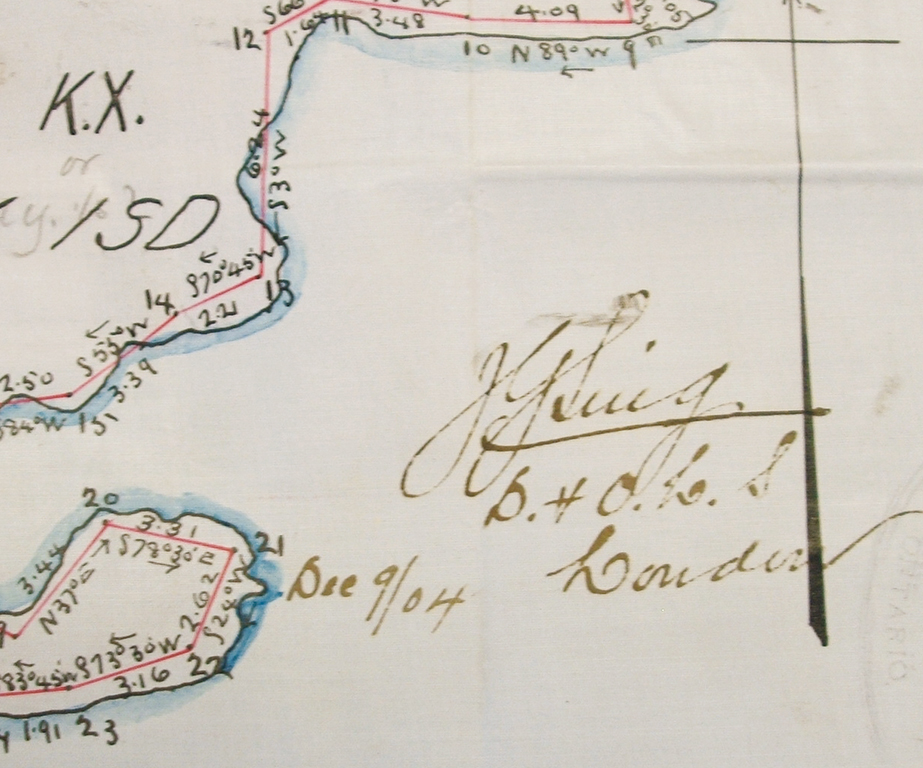 12
1.64
11
3.48
4.09
10 N 89° W 9
K.X.
or
6.84
S3°W
S70°45'W
13
14
2.21
S53°W
3.39
2.50
S84°W 15
J G Sing
D. & O. L. S
London
Dec 9/04
20
3.31
S78°30'E
21
3.44
N37°E
2.62
S24°W
S73°30'W
22
83°45'W
3.16
1.91 23